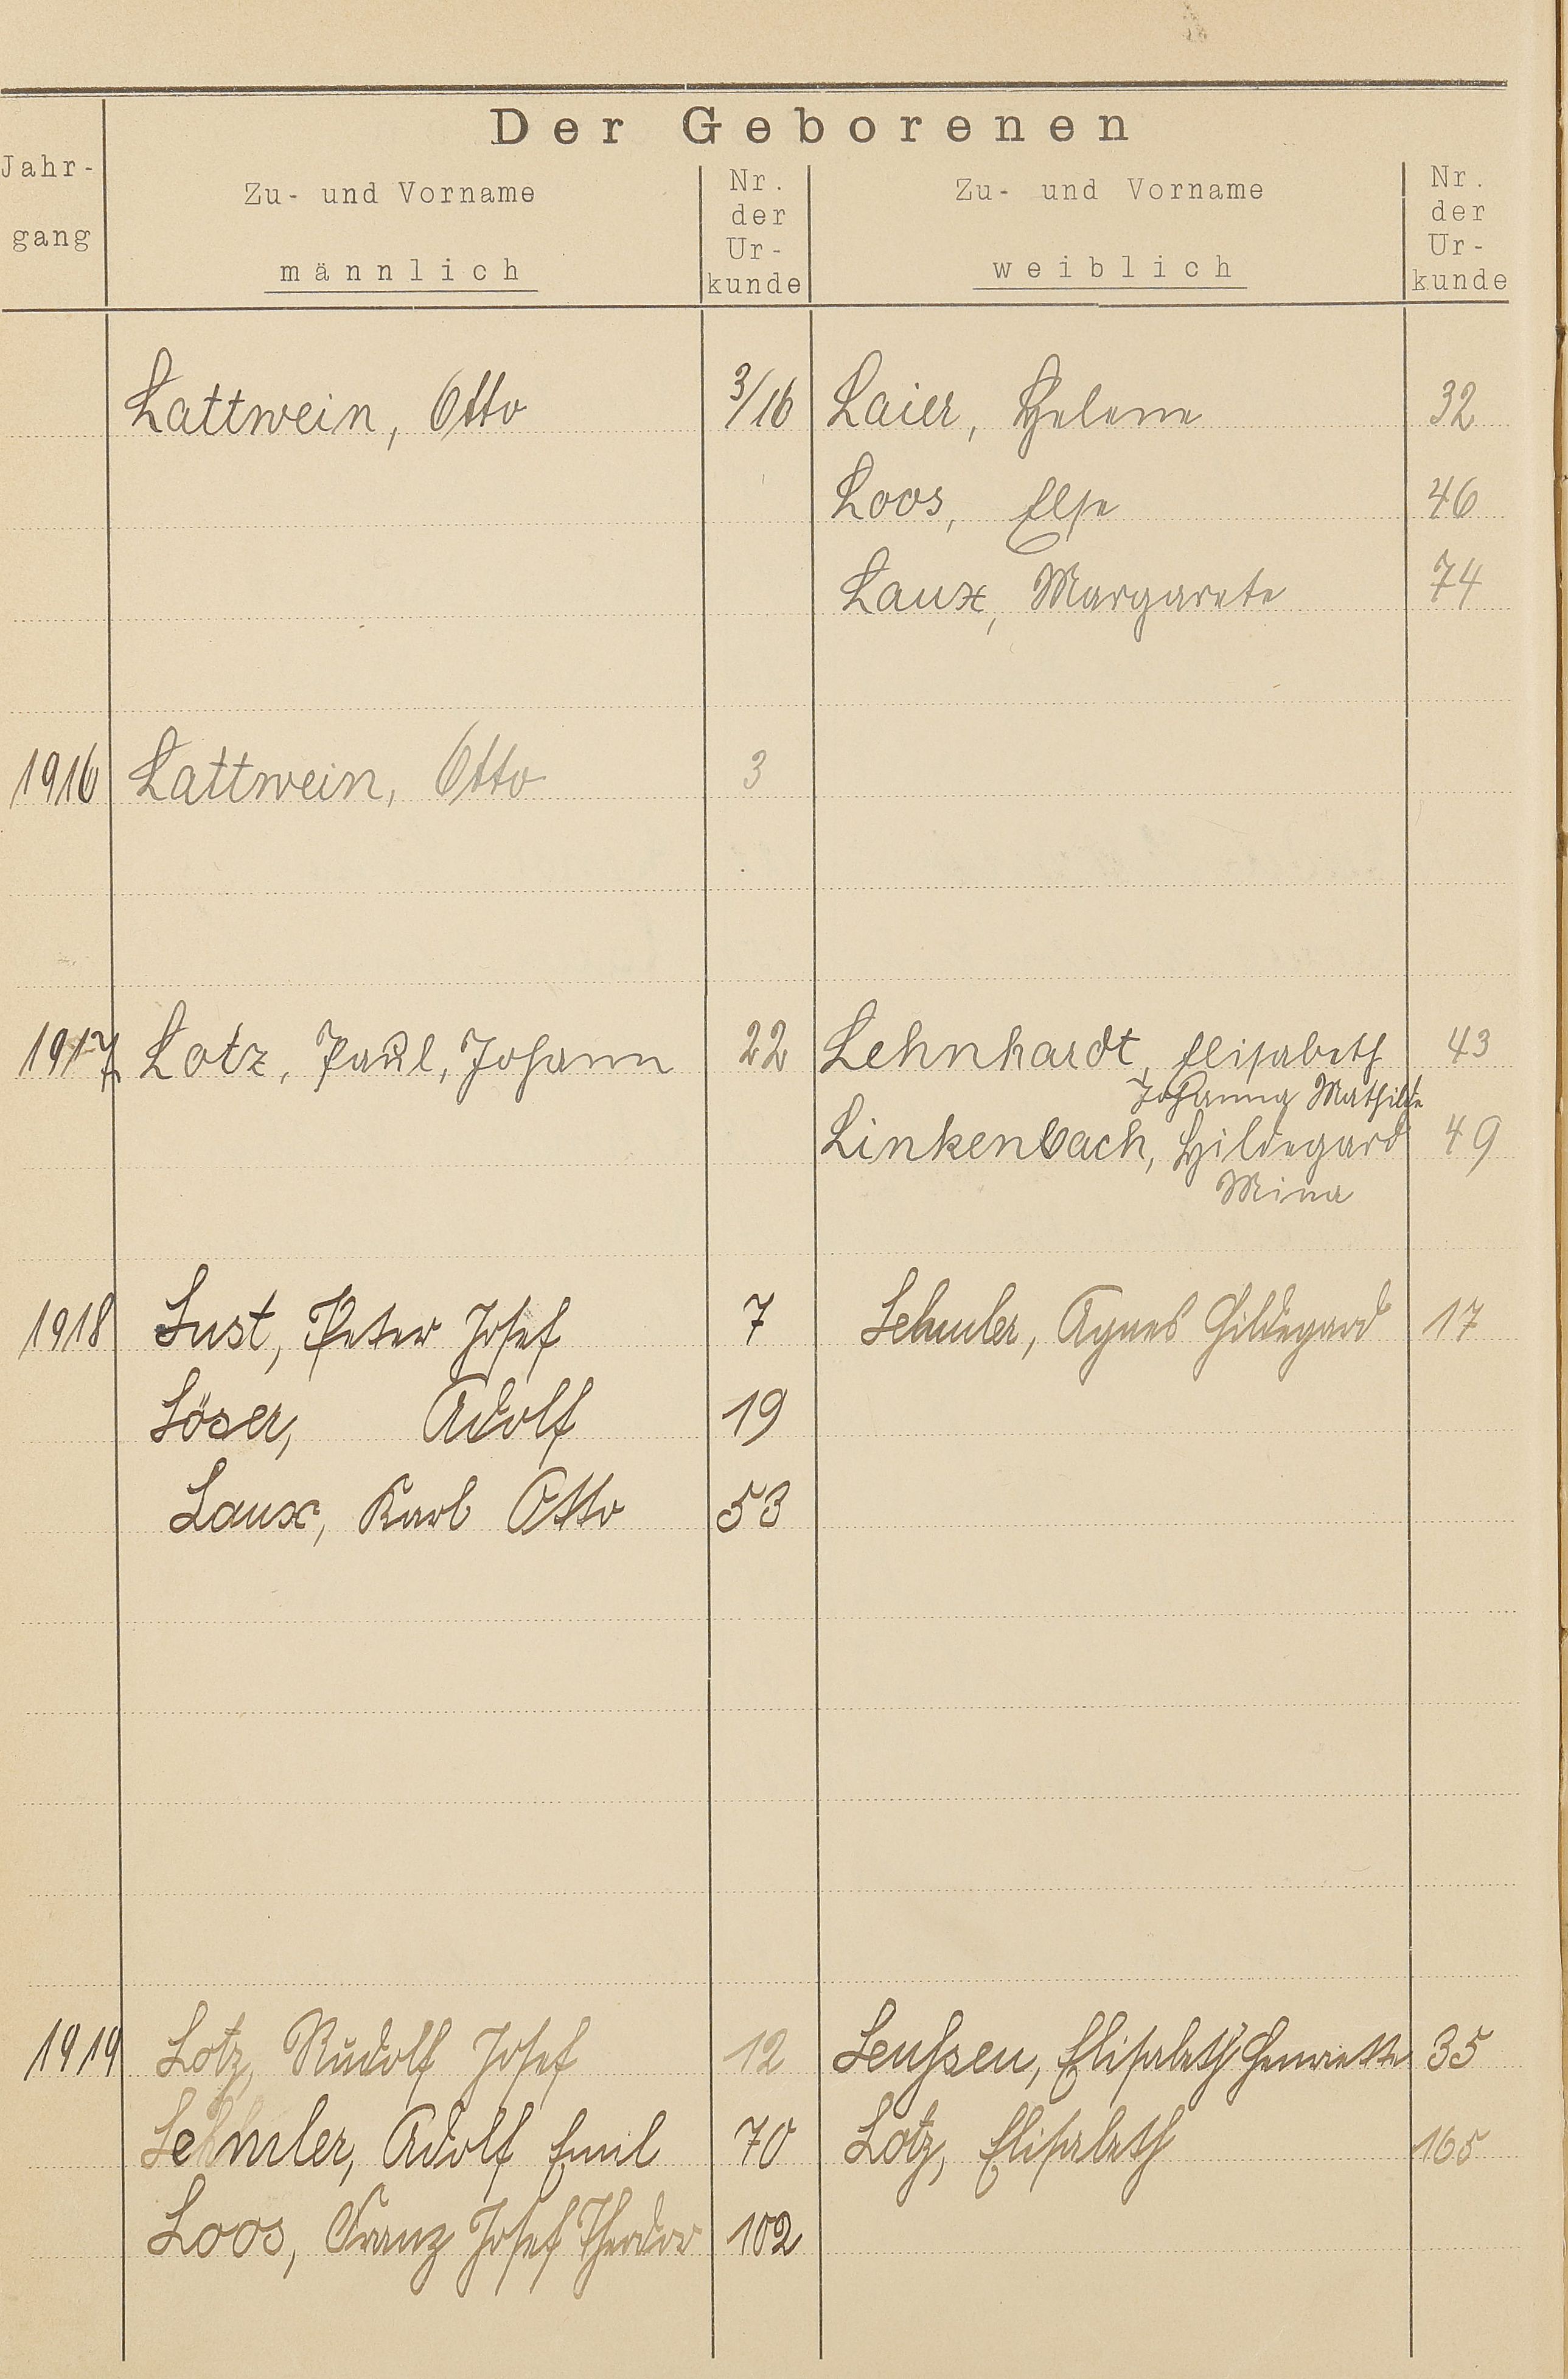 Der Geborenen
Jahr-
gang
Zu- und Vorname
männlich
Nr.
der
Ur-
kunde
Zu- und Vorname
weiblich
Nr.
der
Ur-
kunde
Lattwein, Otto 3/16 Laier, Helene 32
Loos, Else 46
Laux, Margarete 74
1916 Lattwein, Otto 3
1917 Lotz, Paul, Johann 22 Lehnhardt, Elisabeth 43
Johanna Mathilde
Linkenbach, Hildegard 49
Mina
1918 Lust, Peter Josef 7 Lehmler, Agnes Hildegard 17
Löser, Adolf 19
Laux, Karl Otto 53
1919 Lotz, Rudolf Josef 12 Elisabeth Henriette 35
Lehmler, Adolf Emil 70 Lotz, Elisabeth 165
Loos, Franz Josef Theodor 102